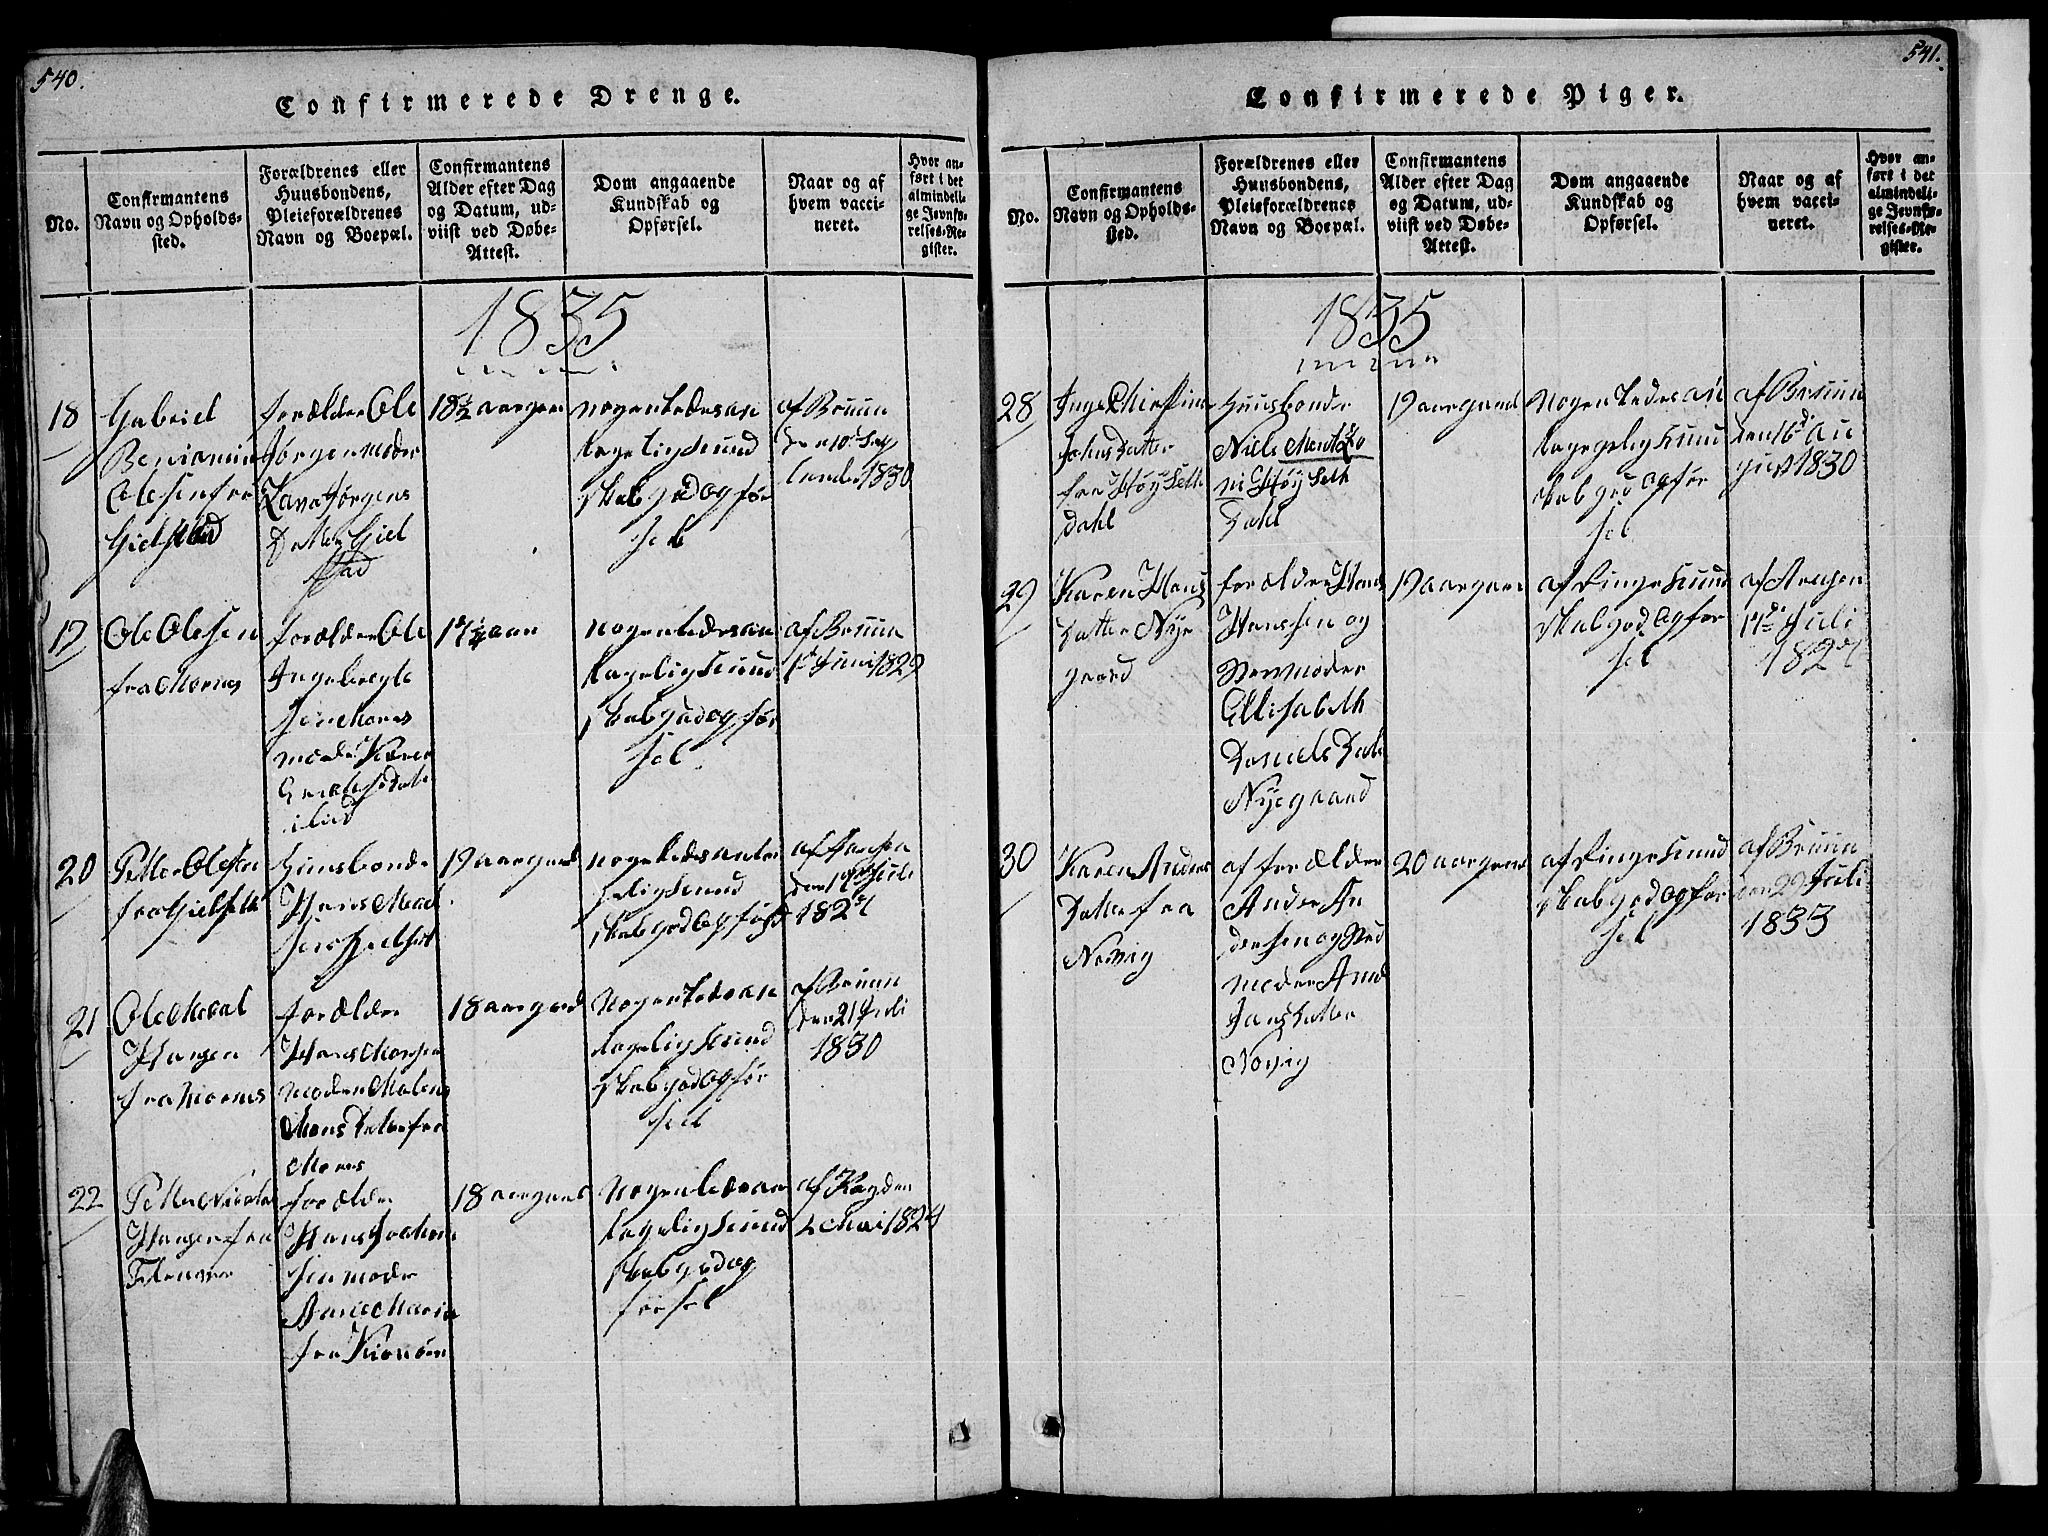 540.
Confirmerede Drenge.
No.
Confirmantens
Navn og Opholds-
sted.
Forældrenes eller
Huusbondens,
Pleieforældrenes
Navn og Boepæl.
Confirmantens
Alder efter Dag
og Datum, ud-
viist ved Døbe-
Attest.
Dom angaaende
Kundskab og
Opførsel.
Naar og af
hvem vacci-
neret.
Hvor an-
ført i det
almindeli-
ge Jevnfø-
relses-Re-
gister.
1835
18
Gabriel
Beniamin
Olesen fra
Gielstad
forælder Ole
Jørgen moder
Lava Jørgens
Datter Giel
stad
18½ aargen
nogenledes an
tagelig kund
skab god opfør
sel
af Bruun
den 10d Sep
tember 1830
19
Ole Olesen
fra Mornes
forælder Ole
Ingebregt
sen Mornes
moder Karen
17½ aar
nogenledes an
tagelig kund
skab god opfør
sel
af Bruun
1d Juni 1829
20
Petter Olesen
fra Gielseth
Huusbonde
Hans
19 aargend
nogeledes anta
gelig kund
skab god opførs
af Hansen
den 17de Juli
1827
21
Ole
Hansen
fra Mornes
forælder
Hans
moder Malena
Mons Datter fra
Mornes
18 aargend
Nogenledes an
tagelig kund
skab god opfør
sel
af Bruun
den 21 Juli
1830
22
Petter Nicolai
Hansen fra
forælder
Hans
sen moder
Anne Maria
fra
18 aargend
Nogenledes an
tagelig kund
skab god op
førsel
af
2 Mai 1824
541.
Confirmerede Piger.
No.
Confirmantens
Navn og Opholds-
sted.
Forældrenes eller
Huusbondens,
Pleieforældrenes
Navn og Boepæl.
Confirmantens
Alder efter Dag
og Datum, ud-
viist ved Døbe-
Attest.
Dom angaaende
Kundskab og
Opførsel.
Naar og af
hvem vacci-
neret.
Hvor an-
ført i det
almindeli-
ge Jevnfø-
relses-Re-
gister.
1835
28
Inge Kirstina
Johns datter
fra Høyseth
dahl
Huusbonde
Niels Mentzo
ni Høyseth
dahl
19 aargend
Nogenledes an
tagelig kund
skab god opfør
sel
af Bruun
den 16d Au
gust 1830
29
Karen Hans
datter Nye
gaard
forælder Hans
Hanssen og
Stevmoder
Ellisabeth
Daniels dat
Nyegaard
19 aargen
af Ringe kund
skab god opfør
sel
af
17de Juli
1827
30
Karen Anders
Datter fra
Norvig
af forælder
Ander An
dersen og Sted
moder Anne
Jans datter
Norvig
20 aargend
af Ringe kund
skab god opfør
sel
af Bruun
den 29 Juli
1833